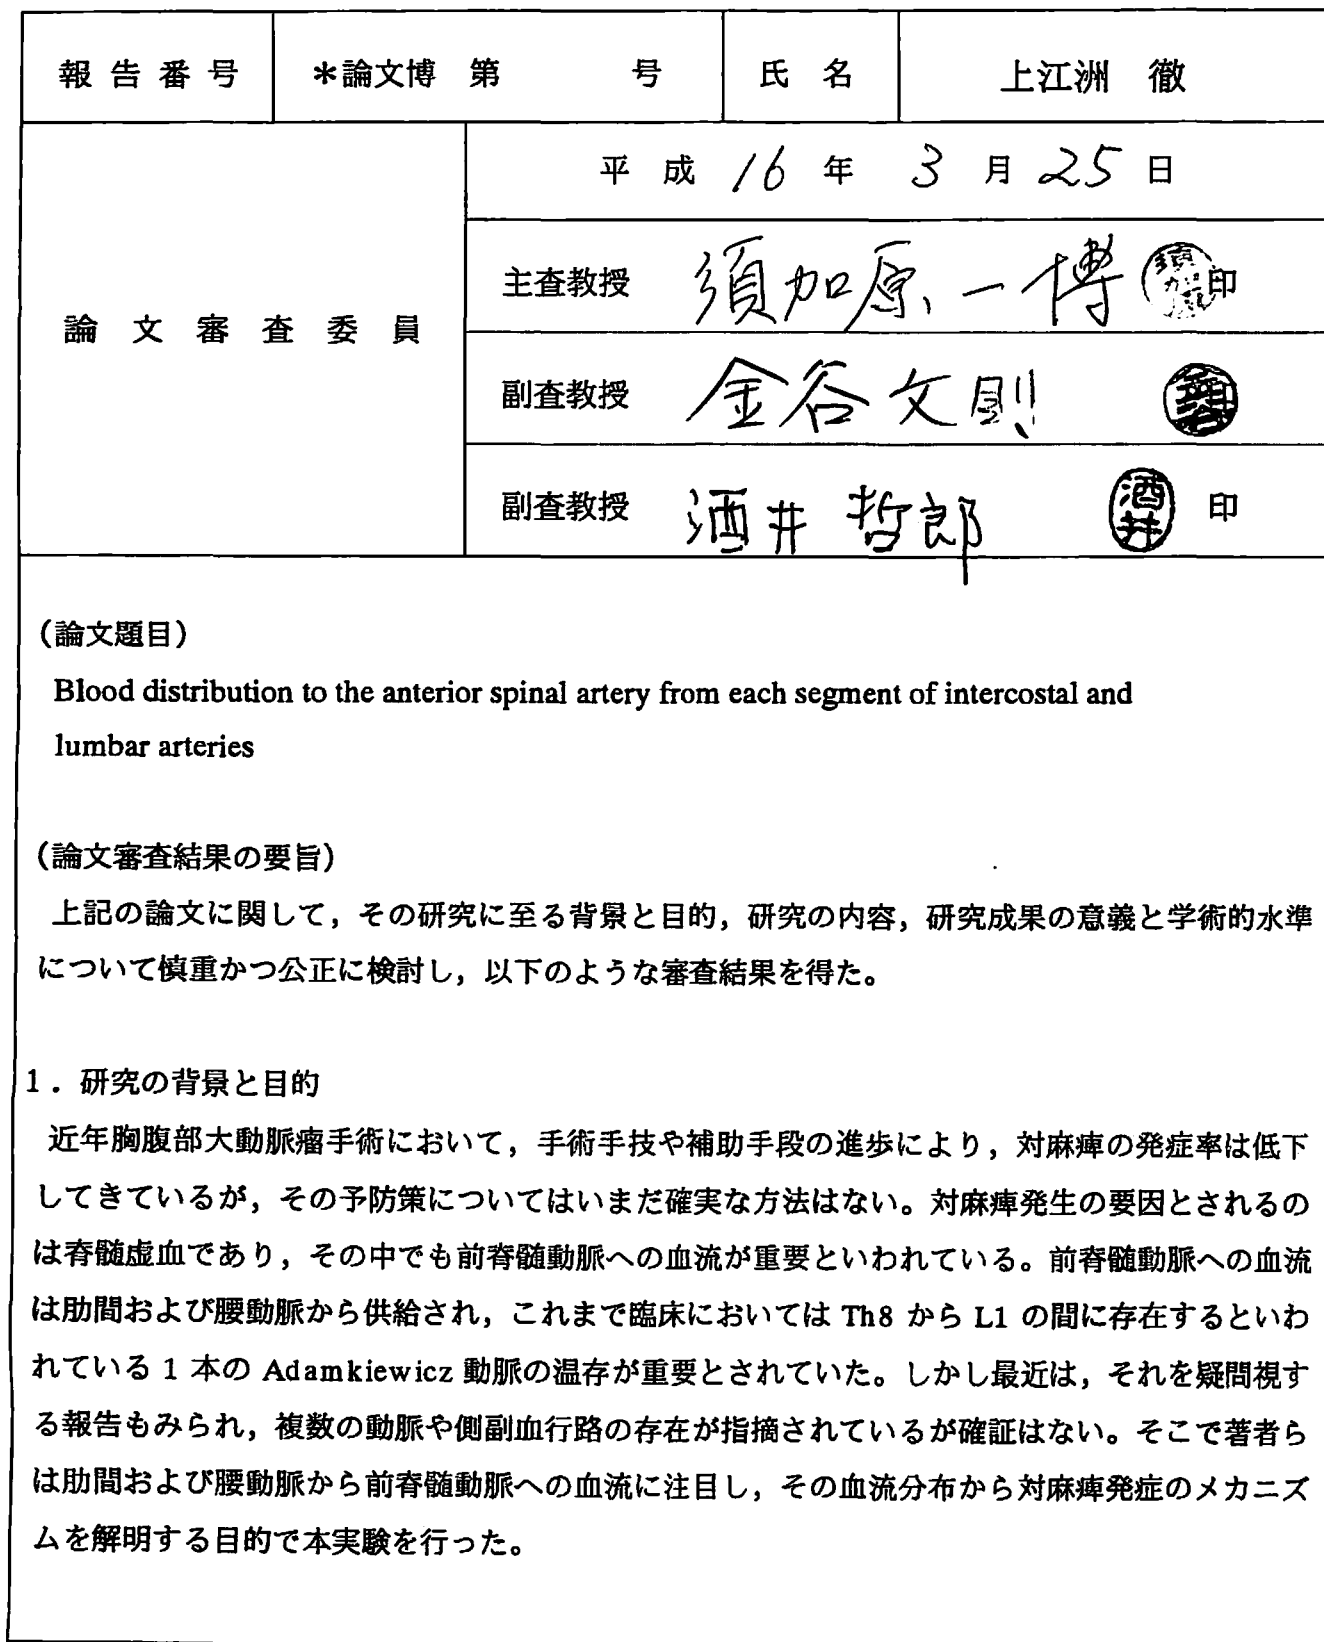 報告番号 ＊論文博 第 号 氏名 上江洲 徹
論文審査委員
平成 16 年 3 月 25 日
主査教授 須加原 一博 印
副査教授 金谷 文則
副査教授 酒井 哲郎 酒井 印
（論文題目）
Blood distribution to the anterior spinal artery from each segment of intercostal and
lumbar arteries
（論文審査結果の要旨）
上記の論文に関して，その研究に至る背景と目的，研究の内容，研究成果の意義と学術的水準
について慎重かつ公正に検討し，以下のような審査結果を得た。
1．研究の背景と目的
近年胸腹部大動脈瘤手術において，手術手技や補助手段の進歩により，対麻痺の発症率は低下
してきているが，その予防策についてはいまだ確実な方法はない。対麻痺発生の要因とされるの
は脊髄虚血であり，その中でも前脊髄動脈への血流が重要といわれている。前脊髄動脈への血流
は肋間および腰動脈から供給され，これまで臨床においては Th8 から L1 の間に存在するといわ
れている 1 本の Adamkiewicz 動脈の温存が重要とされていた。しかし最近は，それを疑問視す
る報告もみられ，複数の動脈や側副血行路の存在が指摘されているが確証はない。そこで著者ら
は肋間および腰動脈から前脊髄動脈への血流に注目し，その血流分布から対麻痺発症のメカニズ
ムを解明する目的で本実験を行った。